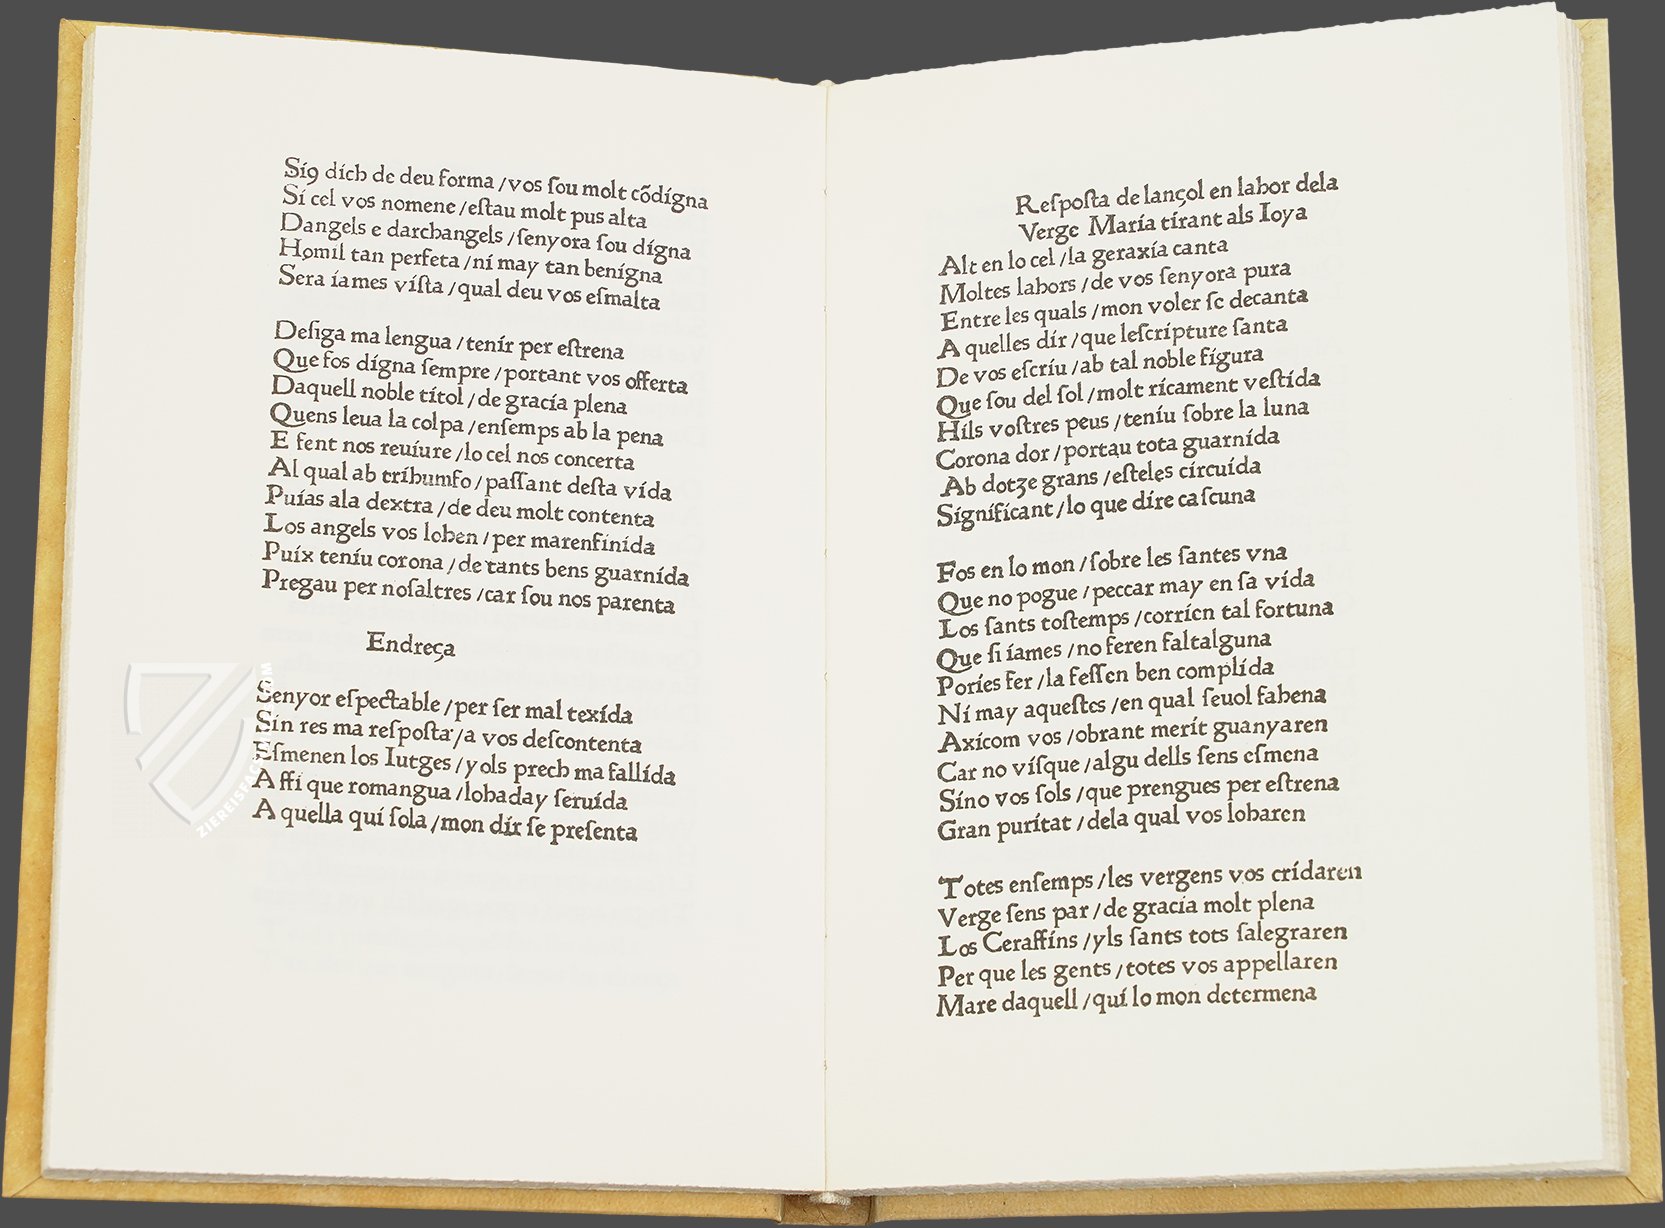 Siꝯ dich de deu forma /vos ſou molt cõdigna
Si cel vos nomene /eſtau molt pus alta
Dangels e darchangels /ſenyora ſou digna
Homil tan perfeta /ni may tan benigna
Sera iames viſta /qual deu vos eſmalta
Deſiga ma lengua /tenir per eſtrena
Que fos digna ſempre /portant vos offerta
Daquell noble titol /de gracia plena
Quens leua la colpa /enſemps ab la pena
E fent nos reuiure /lo cel nos concerta
Al qual ab trihumfo /paſſant deſta vida
Puias ala dextra /de deu molt contenta
Los angels vos lohen /per marenfinida
Puix teniu corona /de tants bens guarnida
Pregau per noſaltres /car ſou nos parenta
Endreça
Senyor eſpectable /per ſer mal texida
Sin res ma reſpoſta /a vos deſcontenta
Eſmenen los Iutges /yols prech ma fallida
Affi que romangua /lohaday ſeruida
A quella qui ſola /mon dir ſe preſenta
Reſpoſta de lançol en lahor dela
Verge Maria tirant als Ioya
Alt en lo cel /la geraxia canta
Moltes lahors /de vos ſenyora pura
Entre les quals /mon voler ſe decanta
A quelles dir /que leſcripture ſanta
De vos eſcriu /ab tal noble figura
Que ſou del ſol /molt ricament veſtida
Hils voſtres peus /teniu ſobre la luna
Corona dor /portau tota guarnida
Ab dotze grans /eſteles circuida
Significant /lo que dire caſcuna
Fos en lo mon /ſobre les ſantes vna
Que no pogue /peccar may en ſa vida
Los ſants toſtemps /corrien tal fortuna
Que ſi iames /no feren faltalguna
Pories fer /la feſſen ben complida
Ni may aqueſtes /en qual ſeuol fahena
Axicom vos /obrant merit guanyaren
Car no viſque /algu dells ſens eſmena
Sino vos ſols /que prengues per eſtrena
Gran puritat /dela qual vos loharen
Totes enſemps /les vergens vos cridaren
Verge ſens par /de gracia molt plena
Los Ceraffins /yls ſants tots ſalegraren
Per que les gents /totes vos appellaren
Mare daquell /qui lo mon determena